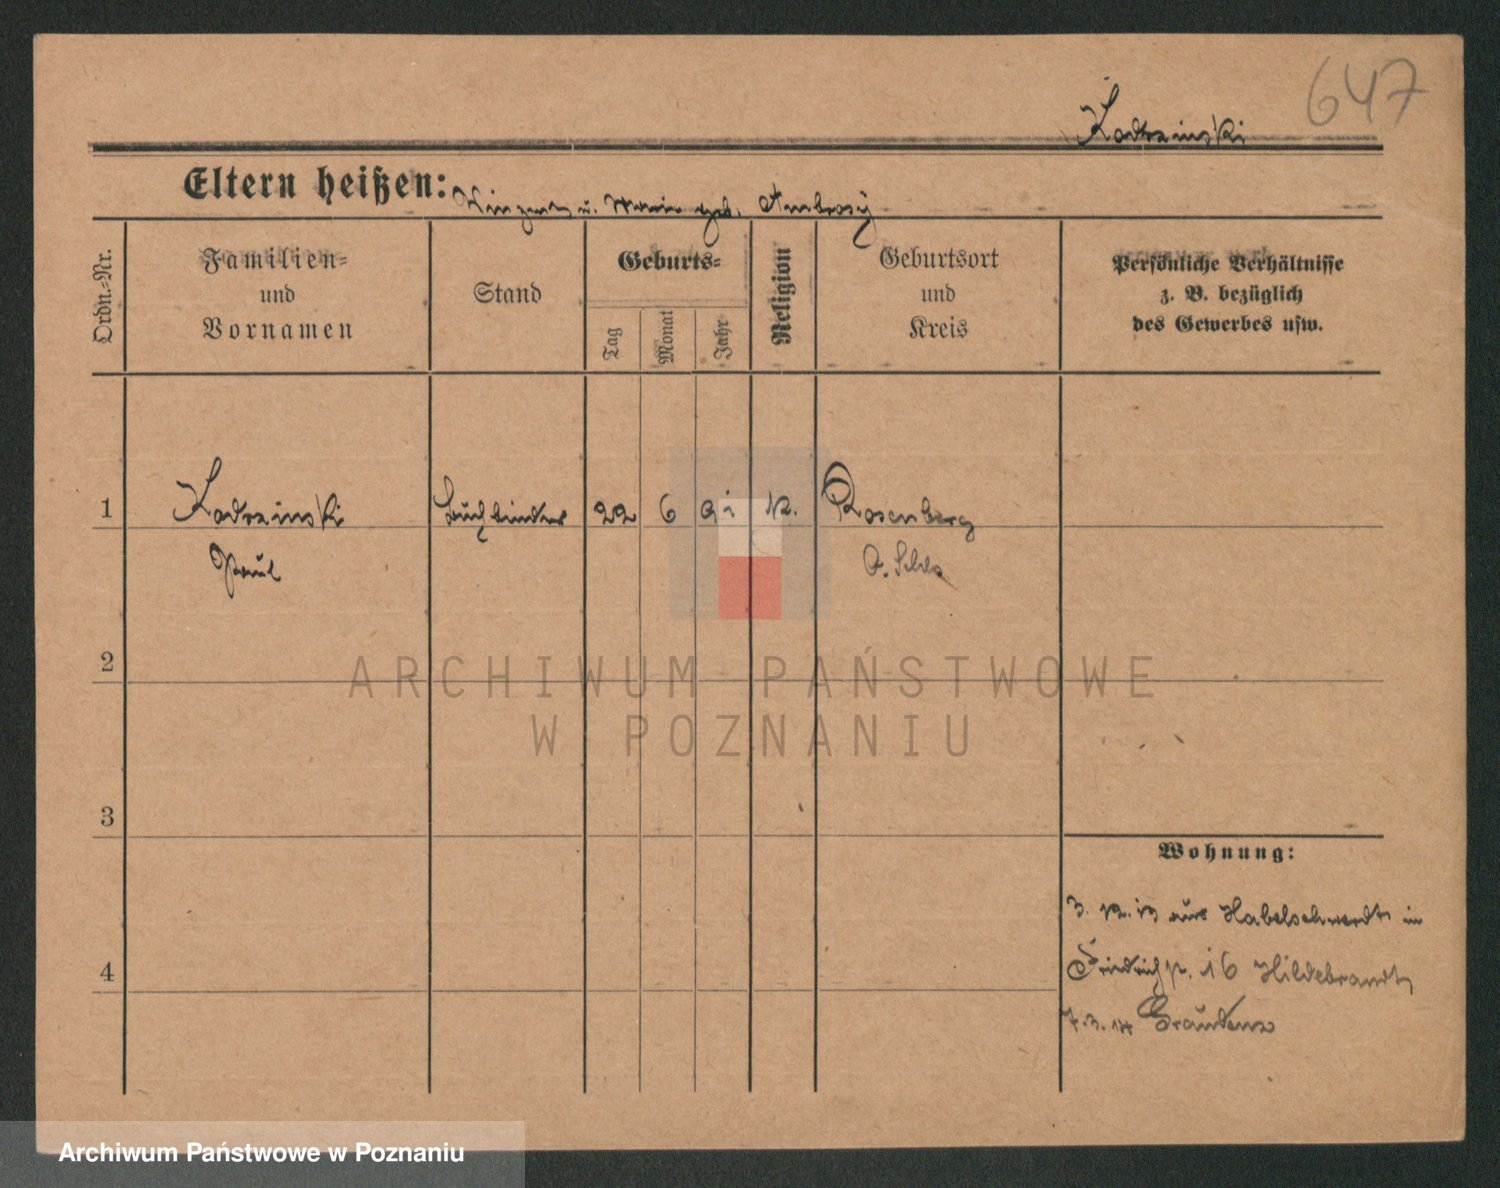 647
Kadzinski
Eltern heißen: Vinzent u. Marie geb. Ambrosy
Ordn.-Nr.
Familien-
und
Vornamen
Stand
Geburts-
Tag
Monat
Jahr
Religion
Geburtsort
und
Kreis
Persönliche Verhältnisse
z. B. bezüglich
des Gewerbes usw.
1
Kadzinski
Buchbinder
22
6
91
K.
Rosenberg
Paul
O. Schls
2
3
4
Wohnung:
3. 12. 13 aus Habelschwerdt in
Friedrichstr. 16 Hildebrandt
7. 3. 14 Graudenz
ARCHIWUM PAŃSTWOWE
W POZNANIU
Archiwum Państwowe w Poznaniu